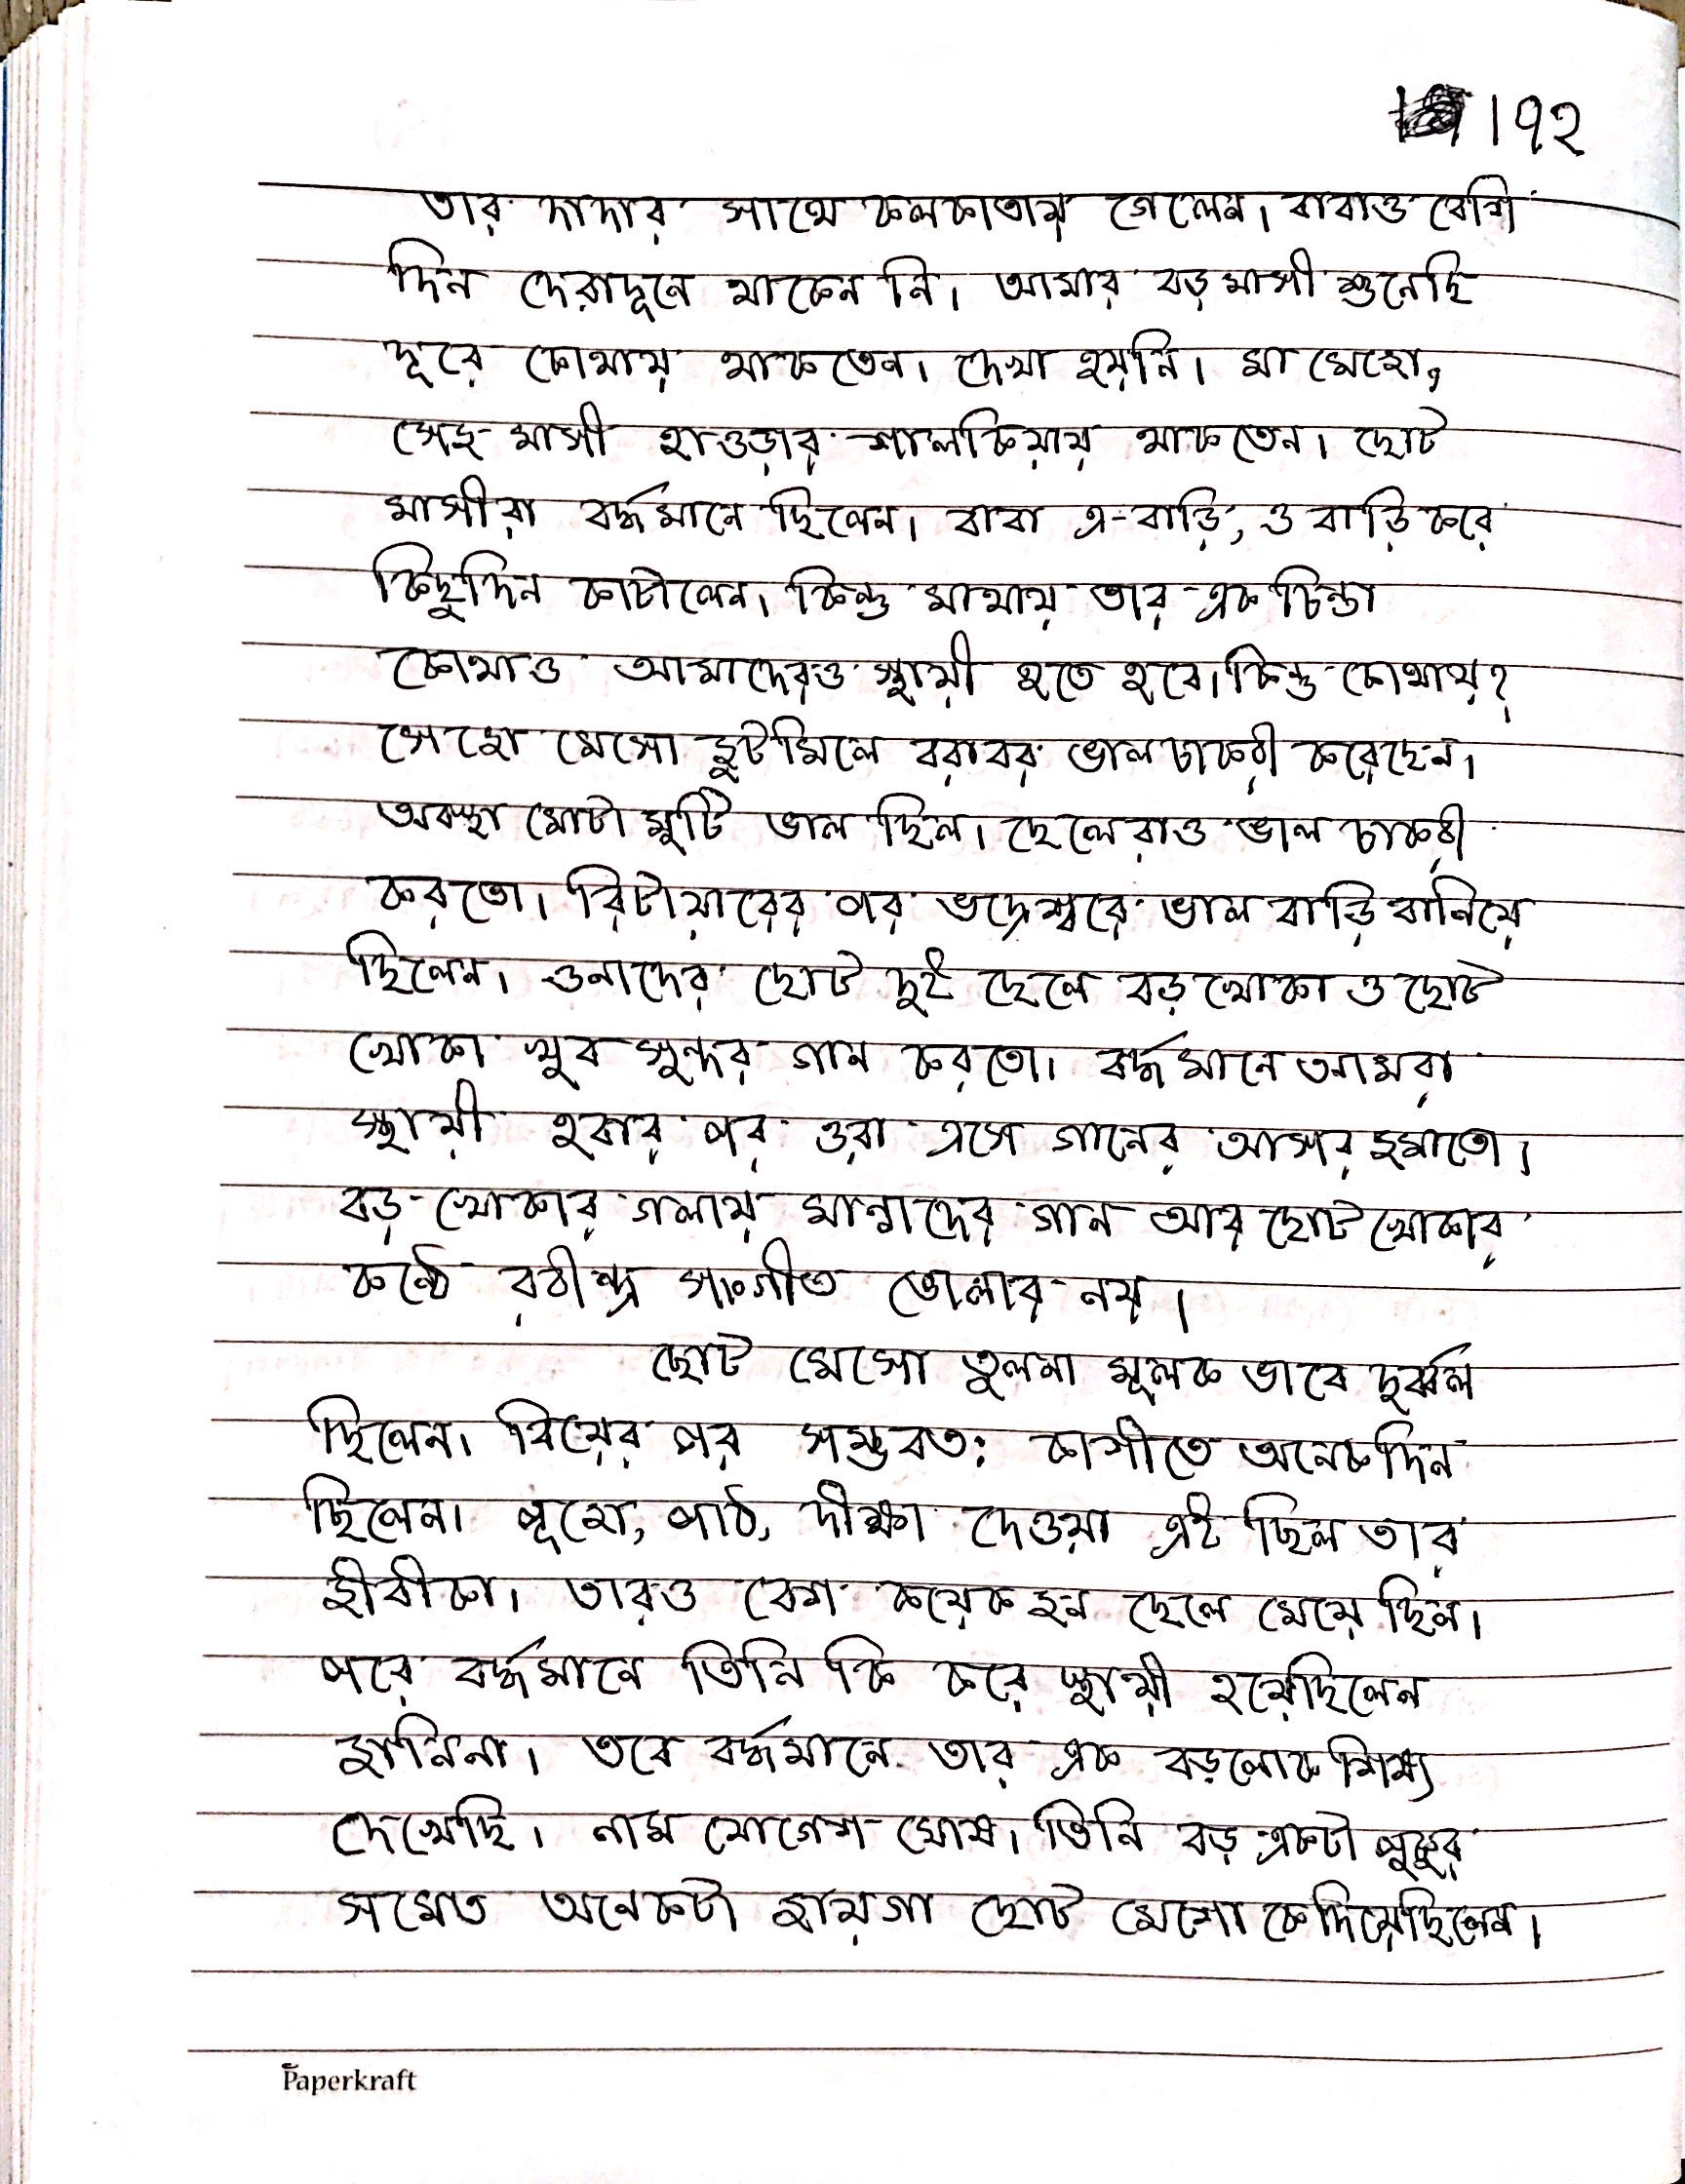 ।৭২
তার দাদার সাথে কলকাতায় গেলেন। বাবাও বেশি
দিন দেরাদূনে থাকেন নি। আমার বড় মাসী শুনেছি
দূরে কোথায় থাকতেন। দেখা হয়নি। মা মেজো,
সেই মাসী হাওড়ার শালকিয়ায় থাকতেন। ছোট
মাসীরা বর্দ্ধমানে ছিলেন। বাবা এ-বাড়ি, ও বাড়ি করে
কিছুদিন কাটালেন। কিন্তু মাথায় তার এক চিন্তা
কোথাও আমাদেরও স্থায়ী হতে হবে। কিন্তু কোথায়?
সেজো মেসো জুটমিলে বরাবর ভাল চাকরী করেছেন।
অবস্থা মোটা মুটি ভাল ছিল। ছেলেরাও ভাল চাকরী
করতো। রিটায়ারের পর ভদ্রেশ্বরে ভাল বাড়ি বানিয়ে
ছিলেন। ওনাদের ছোট দুই ছেলে বড় খোকা ও ছোট
খোকা খুব সুন্দর গান করতো। বর্দ্ধমানে আমরা
স্থায়ী হবার পর ওরা এসে গানের আসর জমাতো।
বড় খোকার গলায় মান্নাদের গান আর ছোট খোকার
কন্ঠে রবীন্দ্র সংগীত ভোলার নয়।
ছোট মেসো তুলনা মূলক ভাবে দুর্ব্বল
ছিলেন। বিয়ের পর সম্ভবত: কাশীতে অনেকদিন
ছিলেন। পূজো, পাঠ, দীক্ষা দেওয়া এই ছিল তার
জীবীকা। তারও বেশ কয়েক জন ছেলে মেয়ে ছিল।
পরে বর্দ্ধমানে তিনি কি করে স্থায়ী হয়েছিলেন
জানিনা। তবে বর্দ্ধমানে তার এক বড়লোক শিষ্য
দেখেছি। নাম যোগেশ ঘোষ। তিনি বড় একটা পুকুর
সমেত অনেকটা জায়গা ছোট মেশো কে দিয়েছিলেন।
Paperkraft